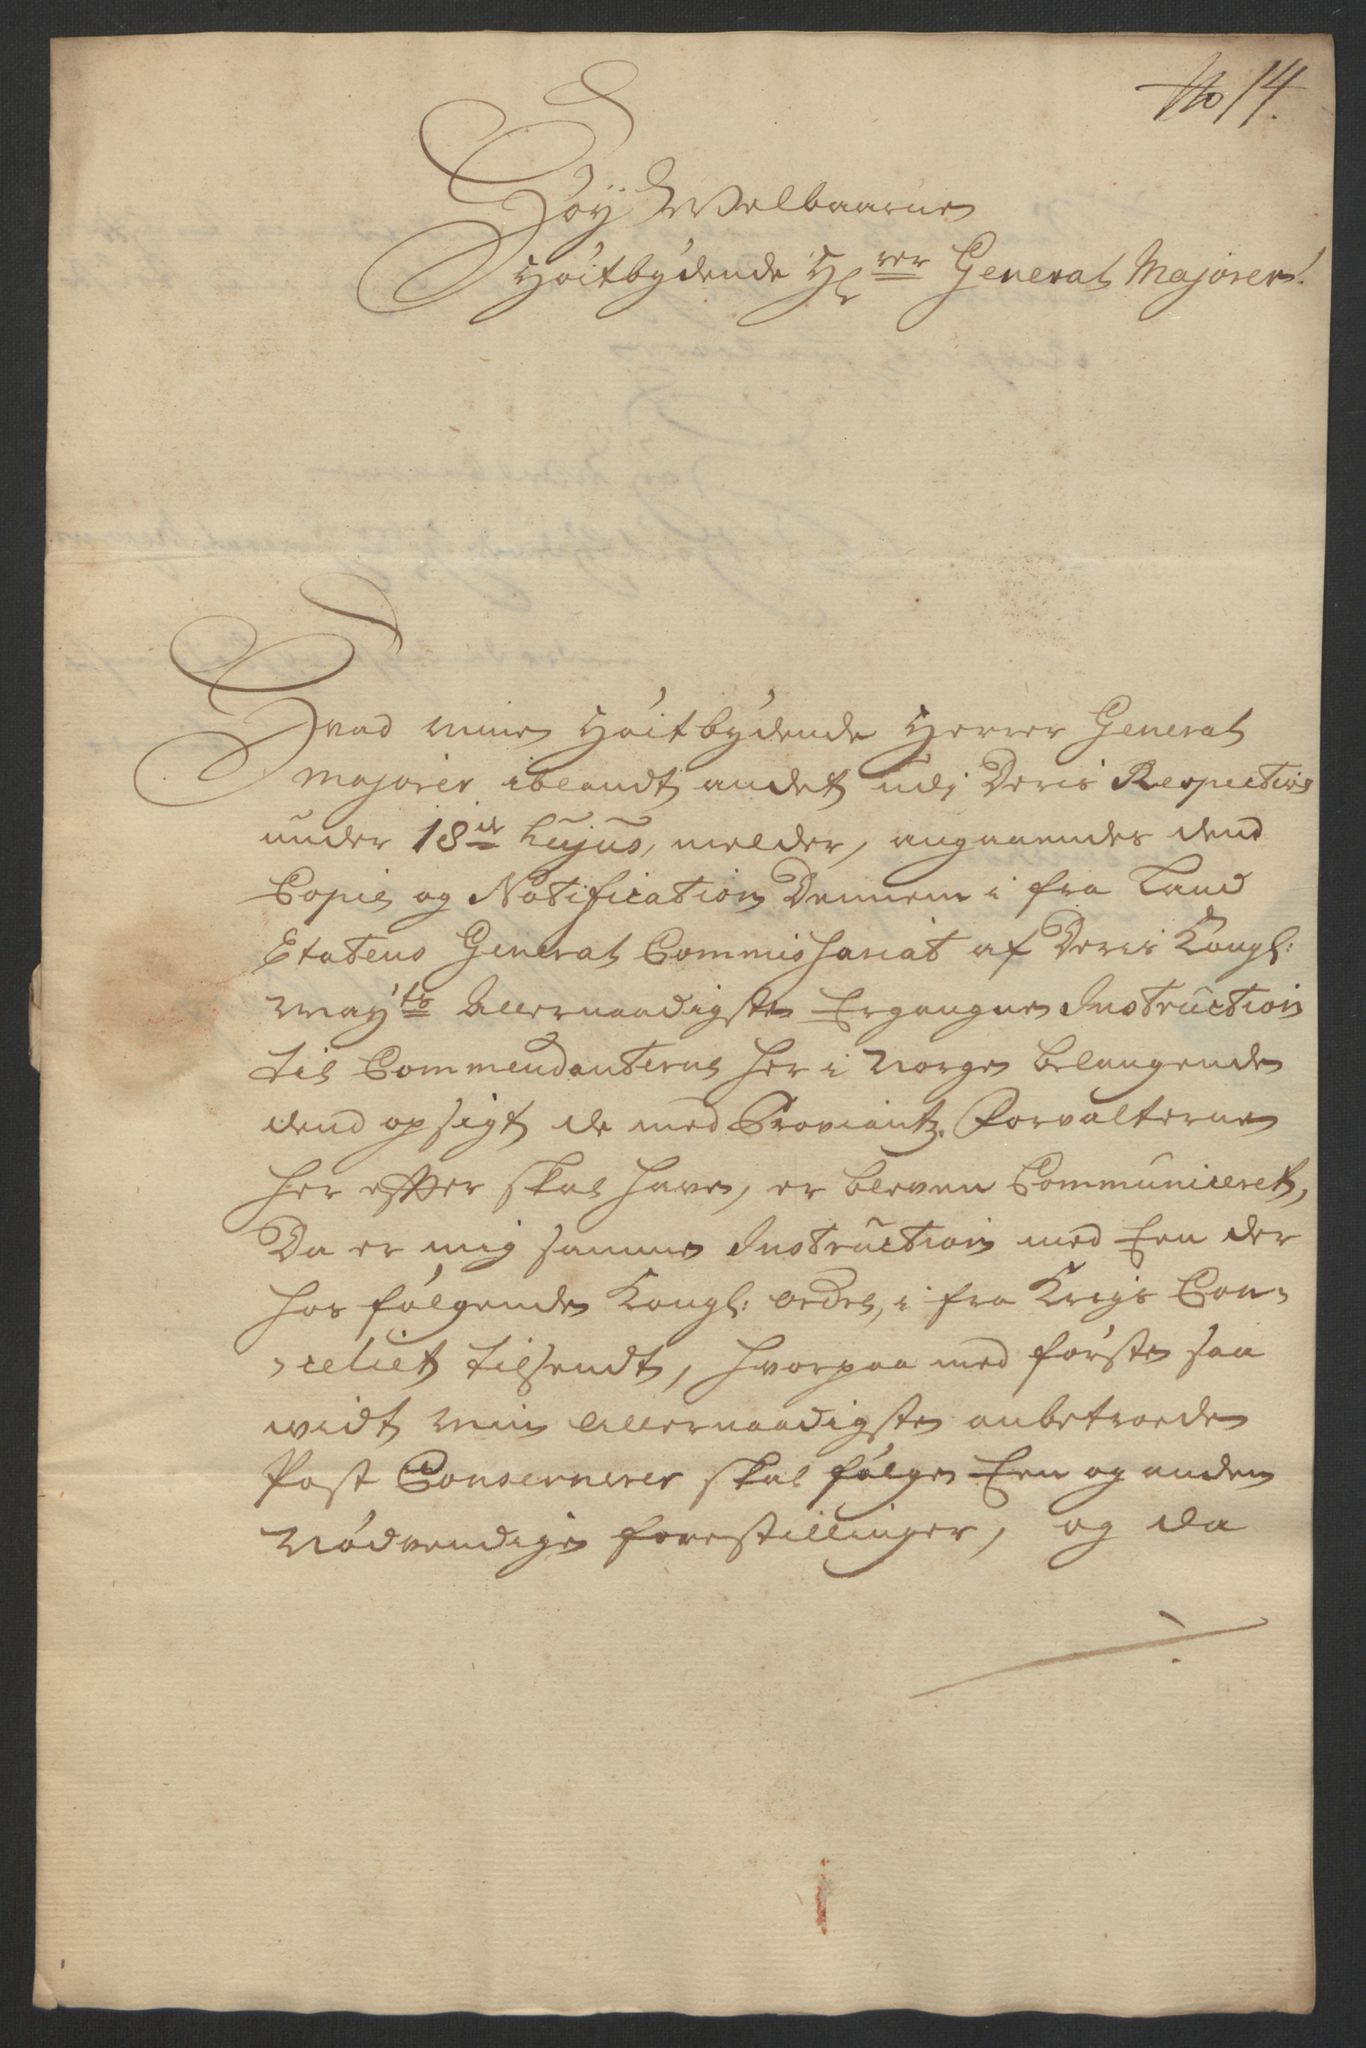 No 14.
Høy Welbaarne
Høitbydende Hr rer General Majorer.
Hvad mine Høitbydende Herrer General
Majorer iblandt andet udj Deris Respective
under 18de hujus, melder, angaaendes dend
Copie og Notification Dennem i fra Land
Etatens General Commissariat af Deris Kongl:
May ts Allernaadigste Ergangne Instruction
til Commendanterne her i Norge belangende
dend opsigt de med Proviantz. Forvalterne
her efter skal have, er bleven Communiceret,
Da er mig samme Instruction med Een der
hos følgende Kongl: ordre, i fra Krigs Can-
-celiet tilsendt, hvorpaa med første saa
vidt min allernaadigste anbetroede
Post Consernerer skal følge Een og anden
Nødvendige forestillinger, og da